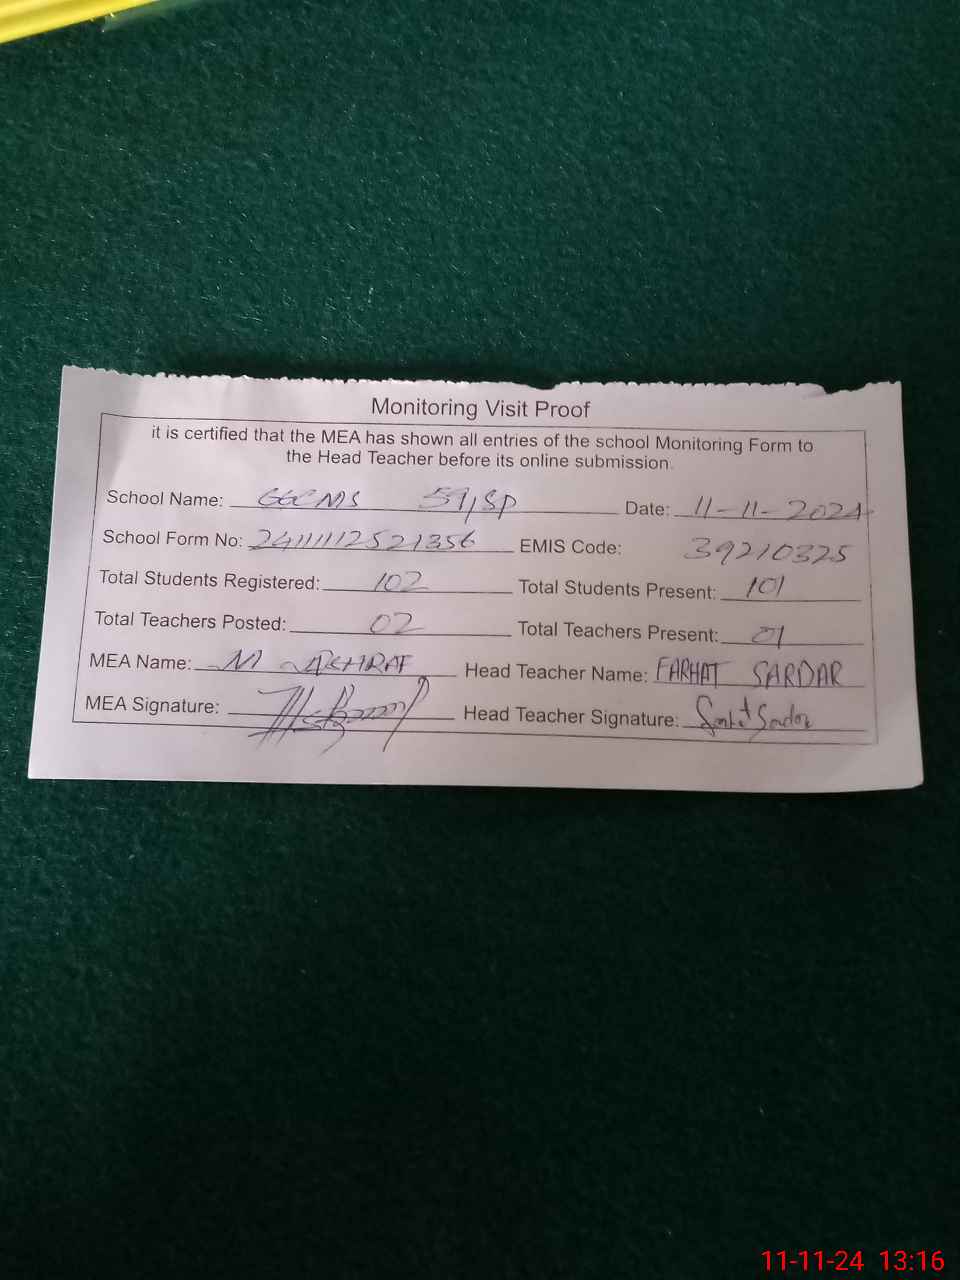 Monitoring Visit Proof
it is certified that the MEA has shown all entries of the school Monitoring Form to
the Head Teacher before its online submission.
School Name: GGCMS 59/SP Date: 11-11-2024
School Form No: 24111112521356 EMIS Code: 39210325
Total Students Registered: 102 Total Students Present: 101
Total Teachers Posted: 02 Total Teachers Present: 01
MEA Name: M ASHRAF Head Teacher Name: FARHAT SARDAR
MEA Signature: Head Teacher Signature: Farhat Sardar
11-11-24 13:16